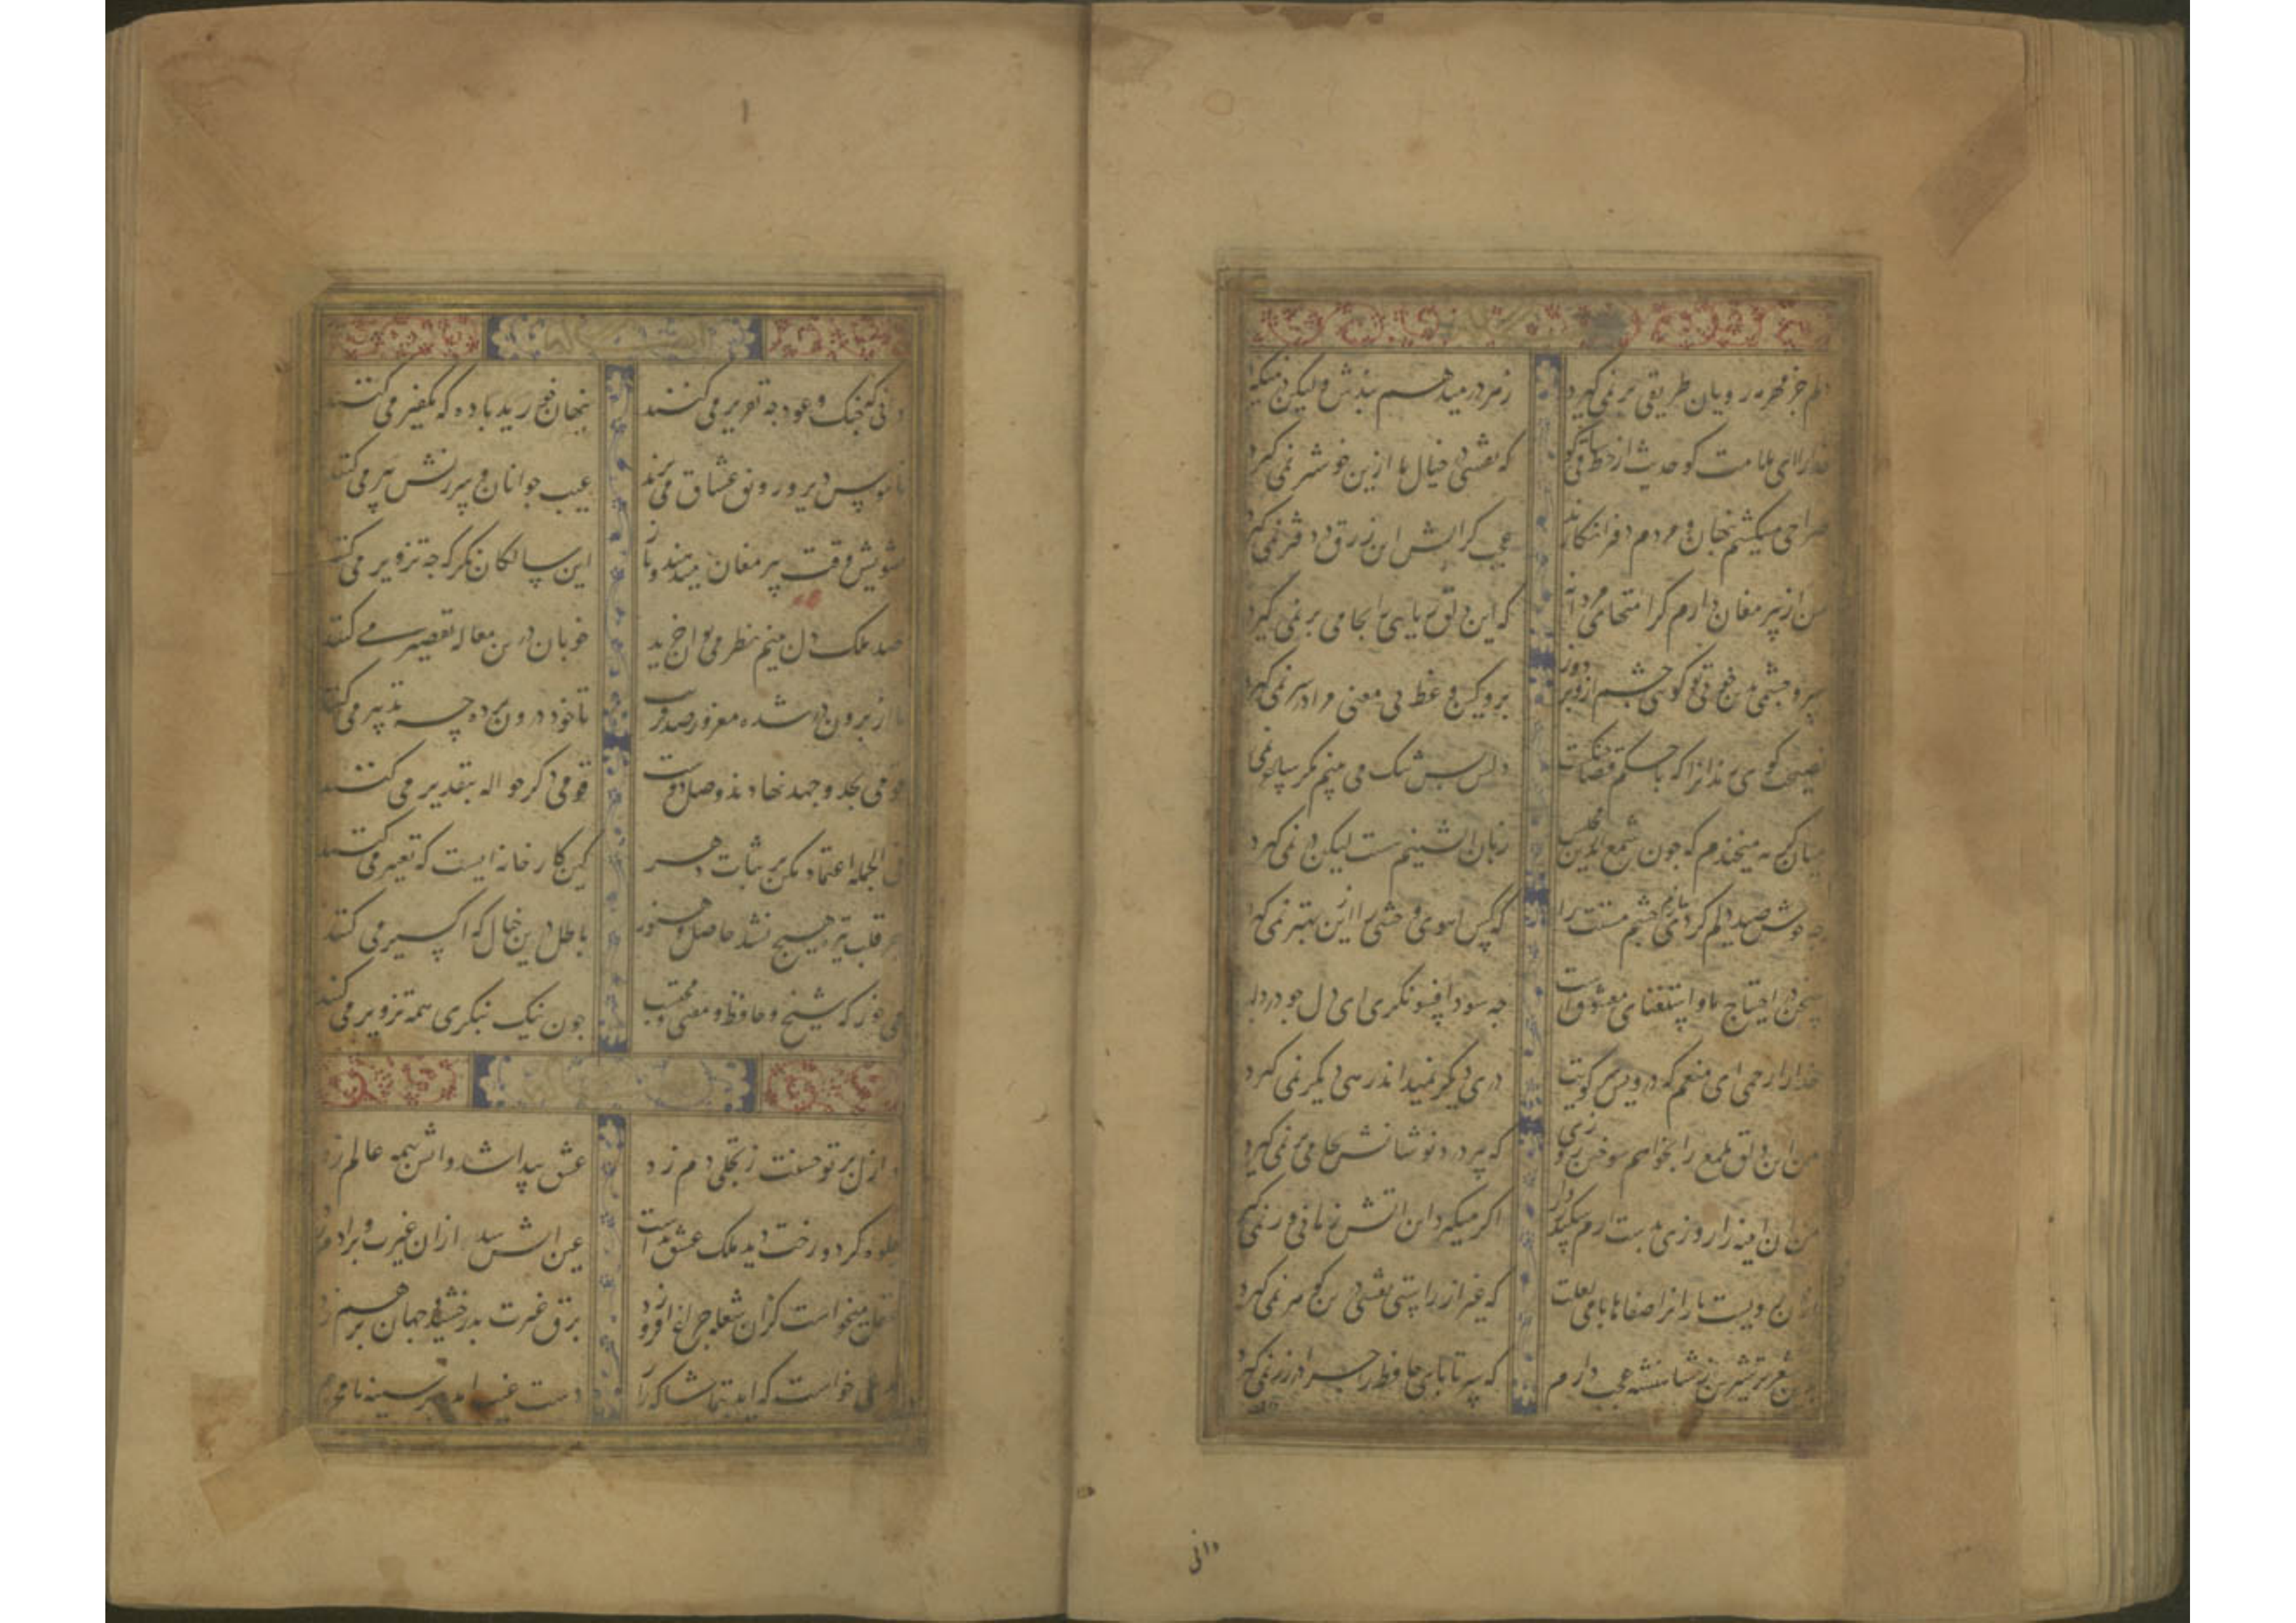 دلم جز مهر مه رویان طریقی بر نمی گیرد زهر در میدهم پندش ولیکن در نمیگیرد
خدارا ای ملامت گو حدیث از خط ساقی گو که نقشی در خیال ما ازین خوشتر نمی گیرد
صراحی میکشم پنهان و مردم دفتر انگارند عجب گر اتش این زرق در دفتر نمی گیرد
من از پیر مغان دارم کرامتهای مردانه که این دلق ریایی را بجامی بر نمی گیرد
سر و چشمی بدین خوبی تو گویی چشم ازو بر دوز برو کین وعظ بی معنی مرا در سر نمی گیرد
نصیحت گوی رندانرا که با حکم قضا جنکست دلش بس تنک می بینم مکر ساغر نمی
میان گریه میخندم که جون شمع اندرین مجلس زبان اتشینم هست لیکن در نمی گیرد
جه خوش صید دلم کردی بنازم چشم مستت را که کس اهوی وحشی را ازین بهتر نمی گیرد
سخن در احتیاج ما و استغنای معشوق است جه سود افسونگری ای دل جو در دلبر
خدارا رحمی ای منعم که درویش سر کویت دری دیگر نمیداند رهی دیگر نمی گیرد
من این دلق ملمع را بخواهم سوختن روزی که پیر درد نوشانش بجامی بر نمی گیرد
من ان اینه را روزی بدست ارم سکندر وار اگر میگیرد این اتش زمانی ور نمی گیرد
رویست یارانرا صفاها با می لعلت که غیر از راستی نقشی درین جوهر نمی گیرد
شعر تر شیرین ز شاهنشه عجب دارم که سر تا پای حافظ را چرا در زر نمی گیرد
دانی
دانی که جنک و عود جه تقریر می کنند پنهان خورید باده که تکفیر می کنند
ناموس دیر و رونق عشاق می برند عیب جوانان و سرزنش پیر می کنند
تشویش وقت پیر مغان میدهند باز این سالکان نکر که جه تزویر می کنند
صد ملک دل بنیم نظر می توان خرید خوبان درین معامله تقصیر می کنند
ما از برون در شده مغرور صد فریب تا خود درون پرده چه تدبیر می کنند
قومی بجد و جهد نهادند وصل دوست قومی دکر حواله بتقدیر می کنند
فی الجمله اعتماد مکن بر ثبات دهر کین کارخانه ایست که تغییر می کنند
هر قلب تیره هیچ نشد حاصل و هنوز باطل درین خیال که اکسیر می کنند
می خور که شیخ و حافظ و مفتی و محتسب جون نیک بنکری همه تزویر می کنند
در ازل پرتو حسنت ز تجلی دم زد عشق پیدا شد و اتش بهمه عالم زد
جلوه کرد و رخت دید ملک عشق نداشت عین اتش شد ازان غیرت و بر ادم زد
عقل میخواست کزان شعله چراغ افروزد برق غیرت بدرخشید و جهان بر هم زد
مدعی خواست که اید بتماشاکه راز دست غیب امد و بر سینه نامحرم